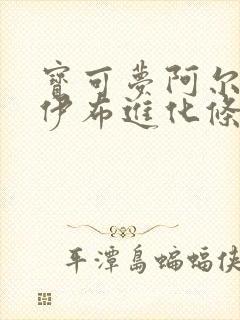 寶可夢阿尔
伊布進化條
平潭島蝙蝠俠